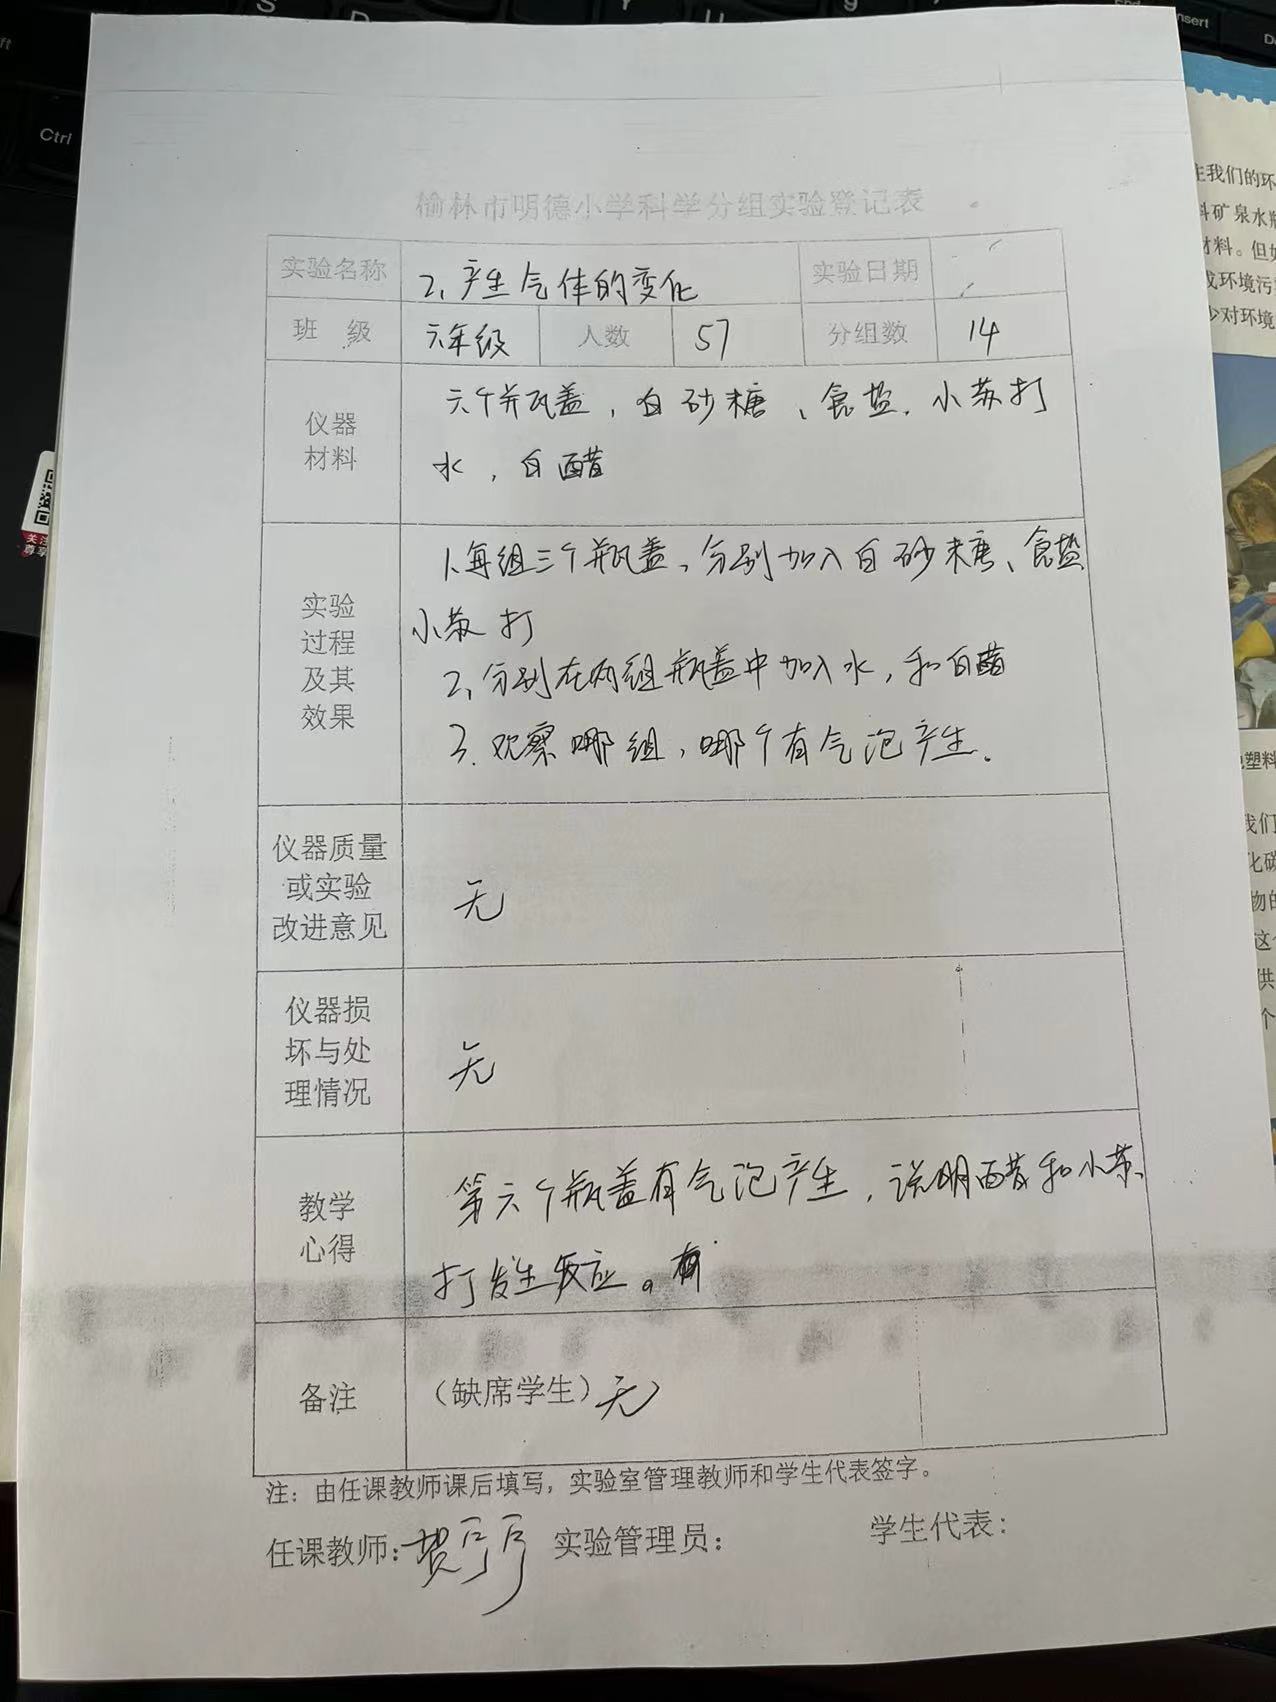 S
Insert
Ctrl
榆林市明德小学科学分组实验登记表
实验名称 2、产生气体的变化 实验日期
班 级 六年级 人数 57 分组数 14
仪器
材料
六个并瓦盖，白砂糖、食盐、小苏打
水，白醋
实验
过程
及其
效果
1、每组三个瓶盖，分别加入白砂糖、食盐
小苏打
2、分别在两组瓶盖中加入水，和白醋
3、观察哪组，哪个有气泡产生。
仪器质量
或实验
改进意见
无
仪器损
坏与处
理情况
无
教学
心得
第六个瓶盖有气泡产生，说明醋和小苏
打发生反应。
备注
（缺席学生）无
注：由任课教师课后填写，实验室管理教师和学生代表签字。
任课教师： 实验管理员： 学生代表：
我们的环
矿泉水瓶
材料。但
环境污
对环境
塑料
我们
化碳
物的
这
供
个